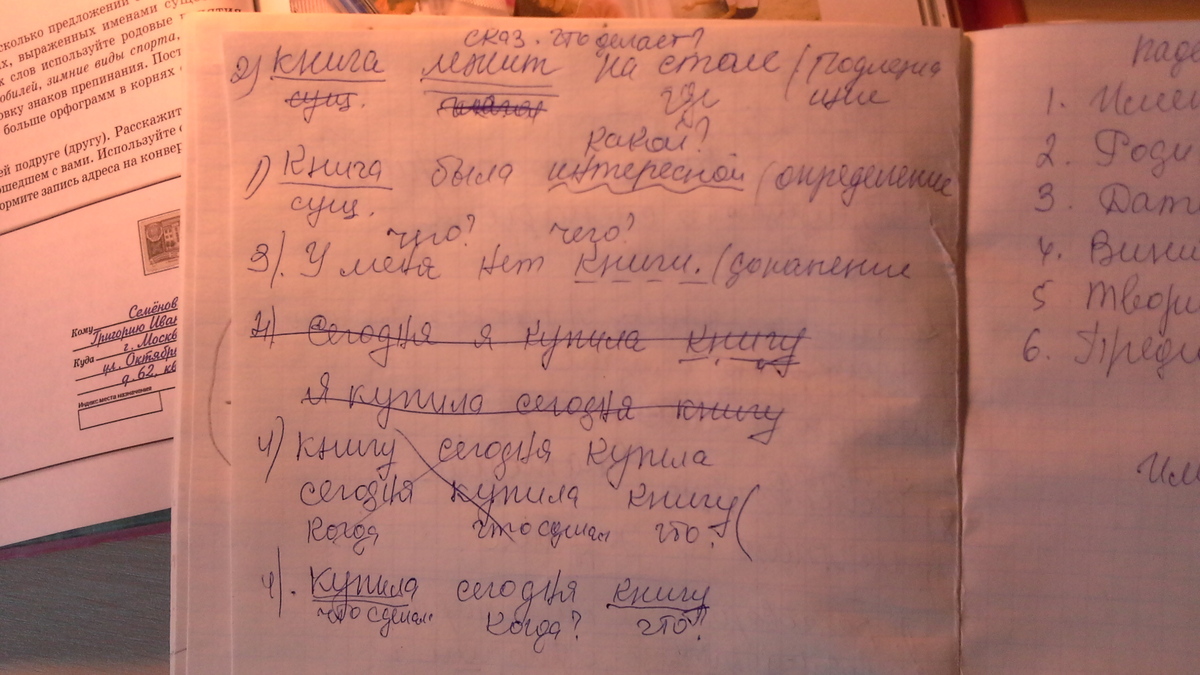 сколько предложений с
х, выраженных именами сущ
х слов используйте родовые понятия
обилей, зимние виды спорта.
овку знаков препинания. Пост
больше орфограмм в корнях с
ей подруге (другу). Расскажит
ошедшем с вами. Используйте с
ормите запись адреса на конвер
Семёнов
Кому Григорию Иван
г. Москв
Куда ул. Октябрь
д. 62, кв
Индекс места назначения
сказ. что делает?
2) Книга лежит на столе (подлежа
сущ. где щие
какой?
1) Книга была интересной (определение
сущ.
чего? чего?
3). У меня нет книги. (дополнение
4) Сегодня я купила книгу
Я купила сегодня книгу
4) Книгу сегодня купила
сегодня купила книгу (
когда что сделал что?
4). Купила сегодня книгу
что сделал когда? что?
пад
1. Имен
2. Роди
3. Дат
4. Вини
5 Твори
6. Предл
Им